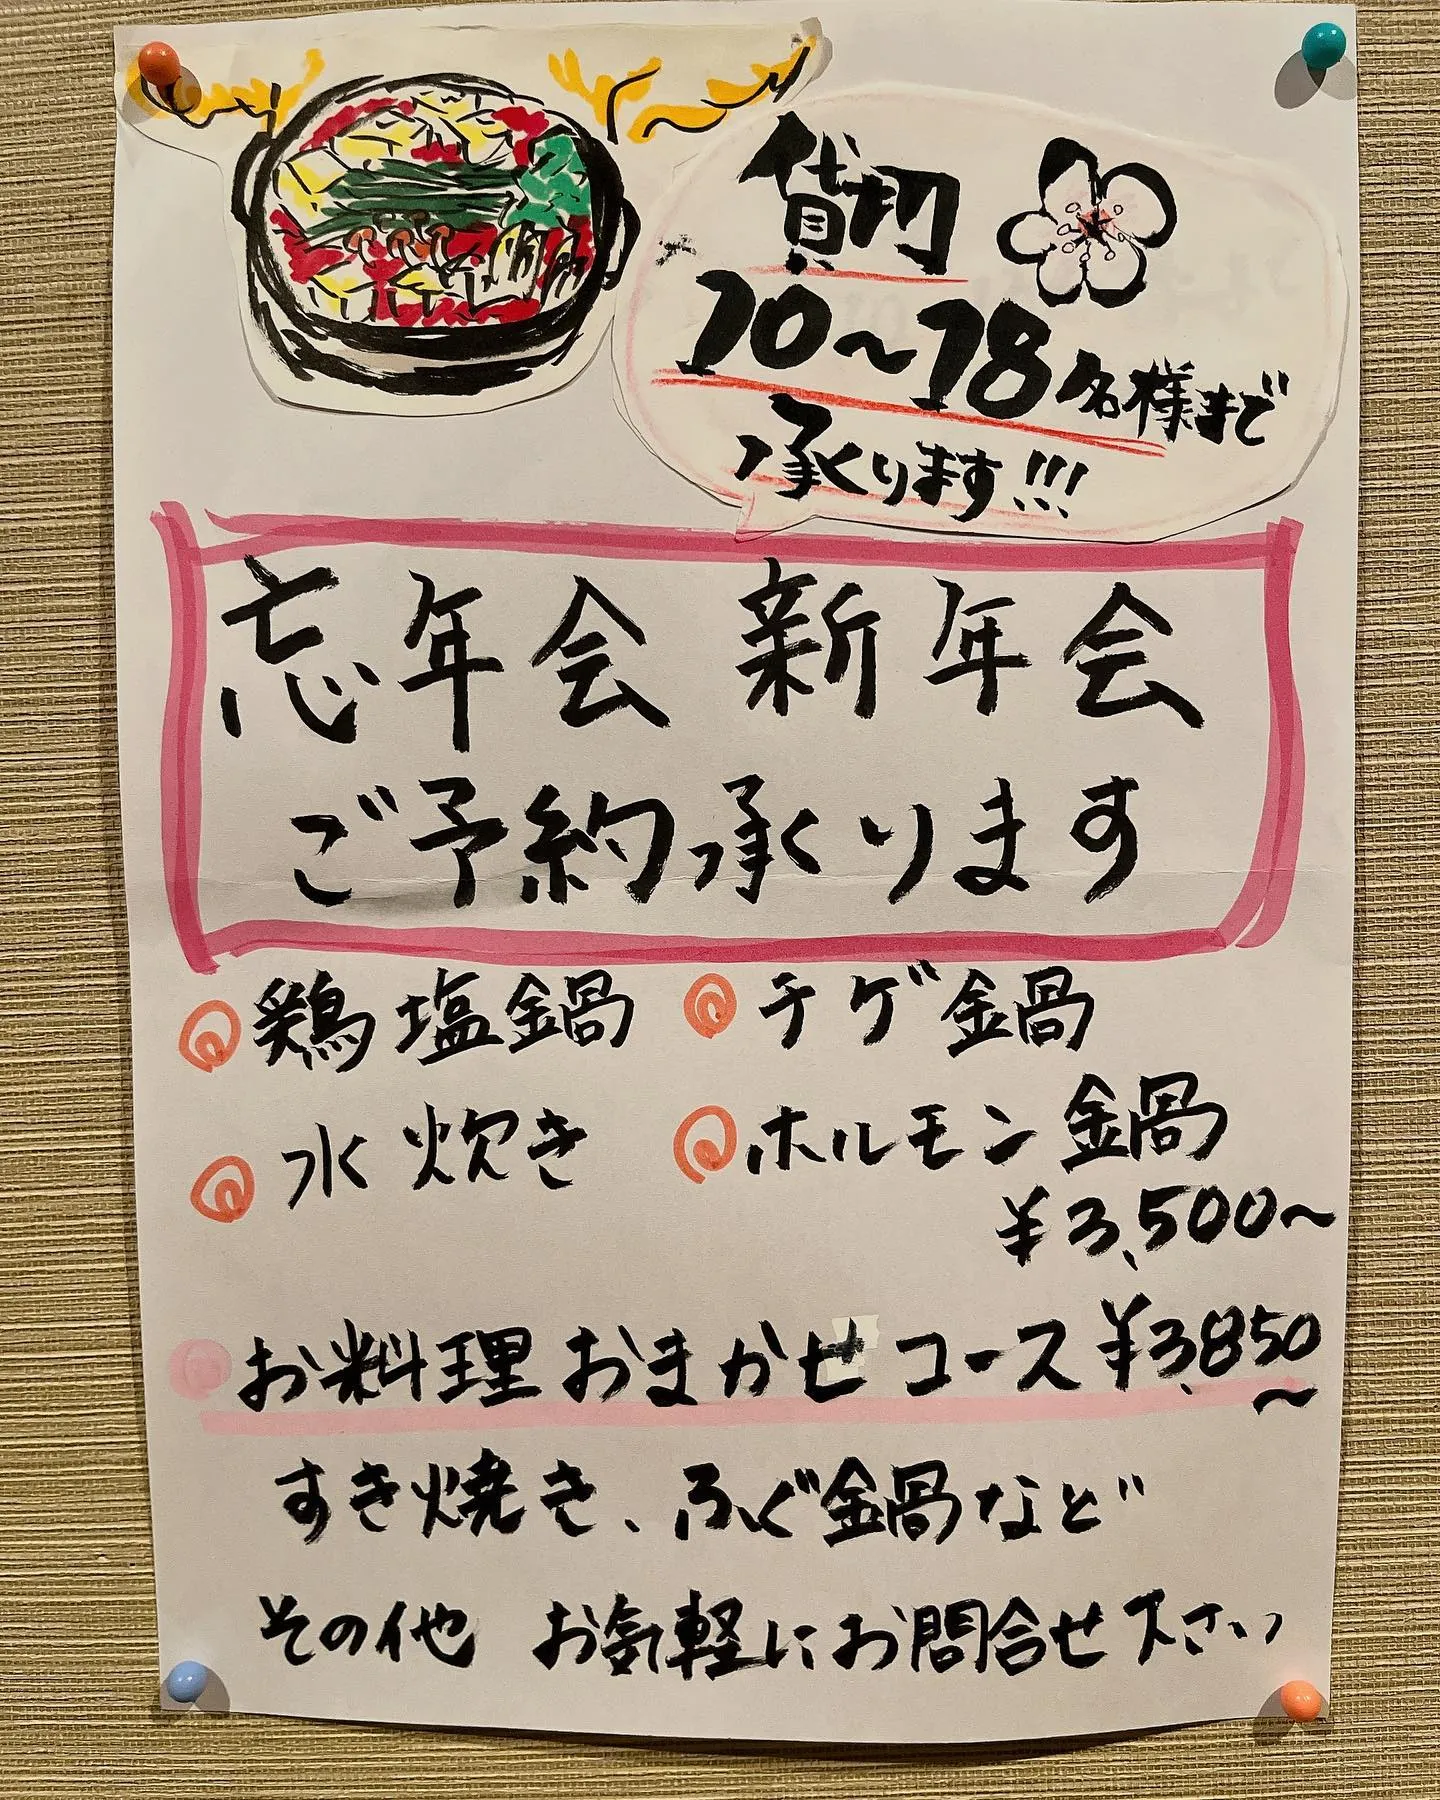 貸切
10～18名様まで
承ります!!!
忘年会 新年会
ご予約承ります
鶏塩鍋 チゲ鍋
水炊き ホルモン鍋
¥3,500～
お料理おまかせコース¥3,850～
すき焼き、ふぐ鍋など
その他 お気軽にお問合せ下さい